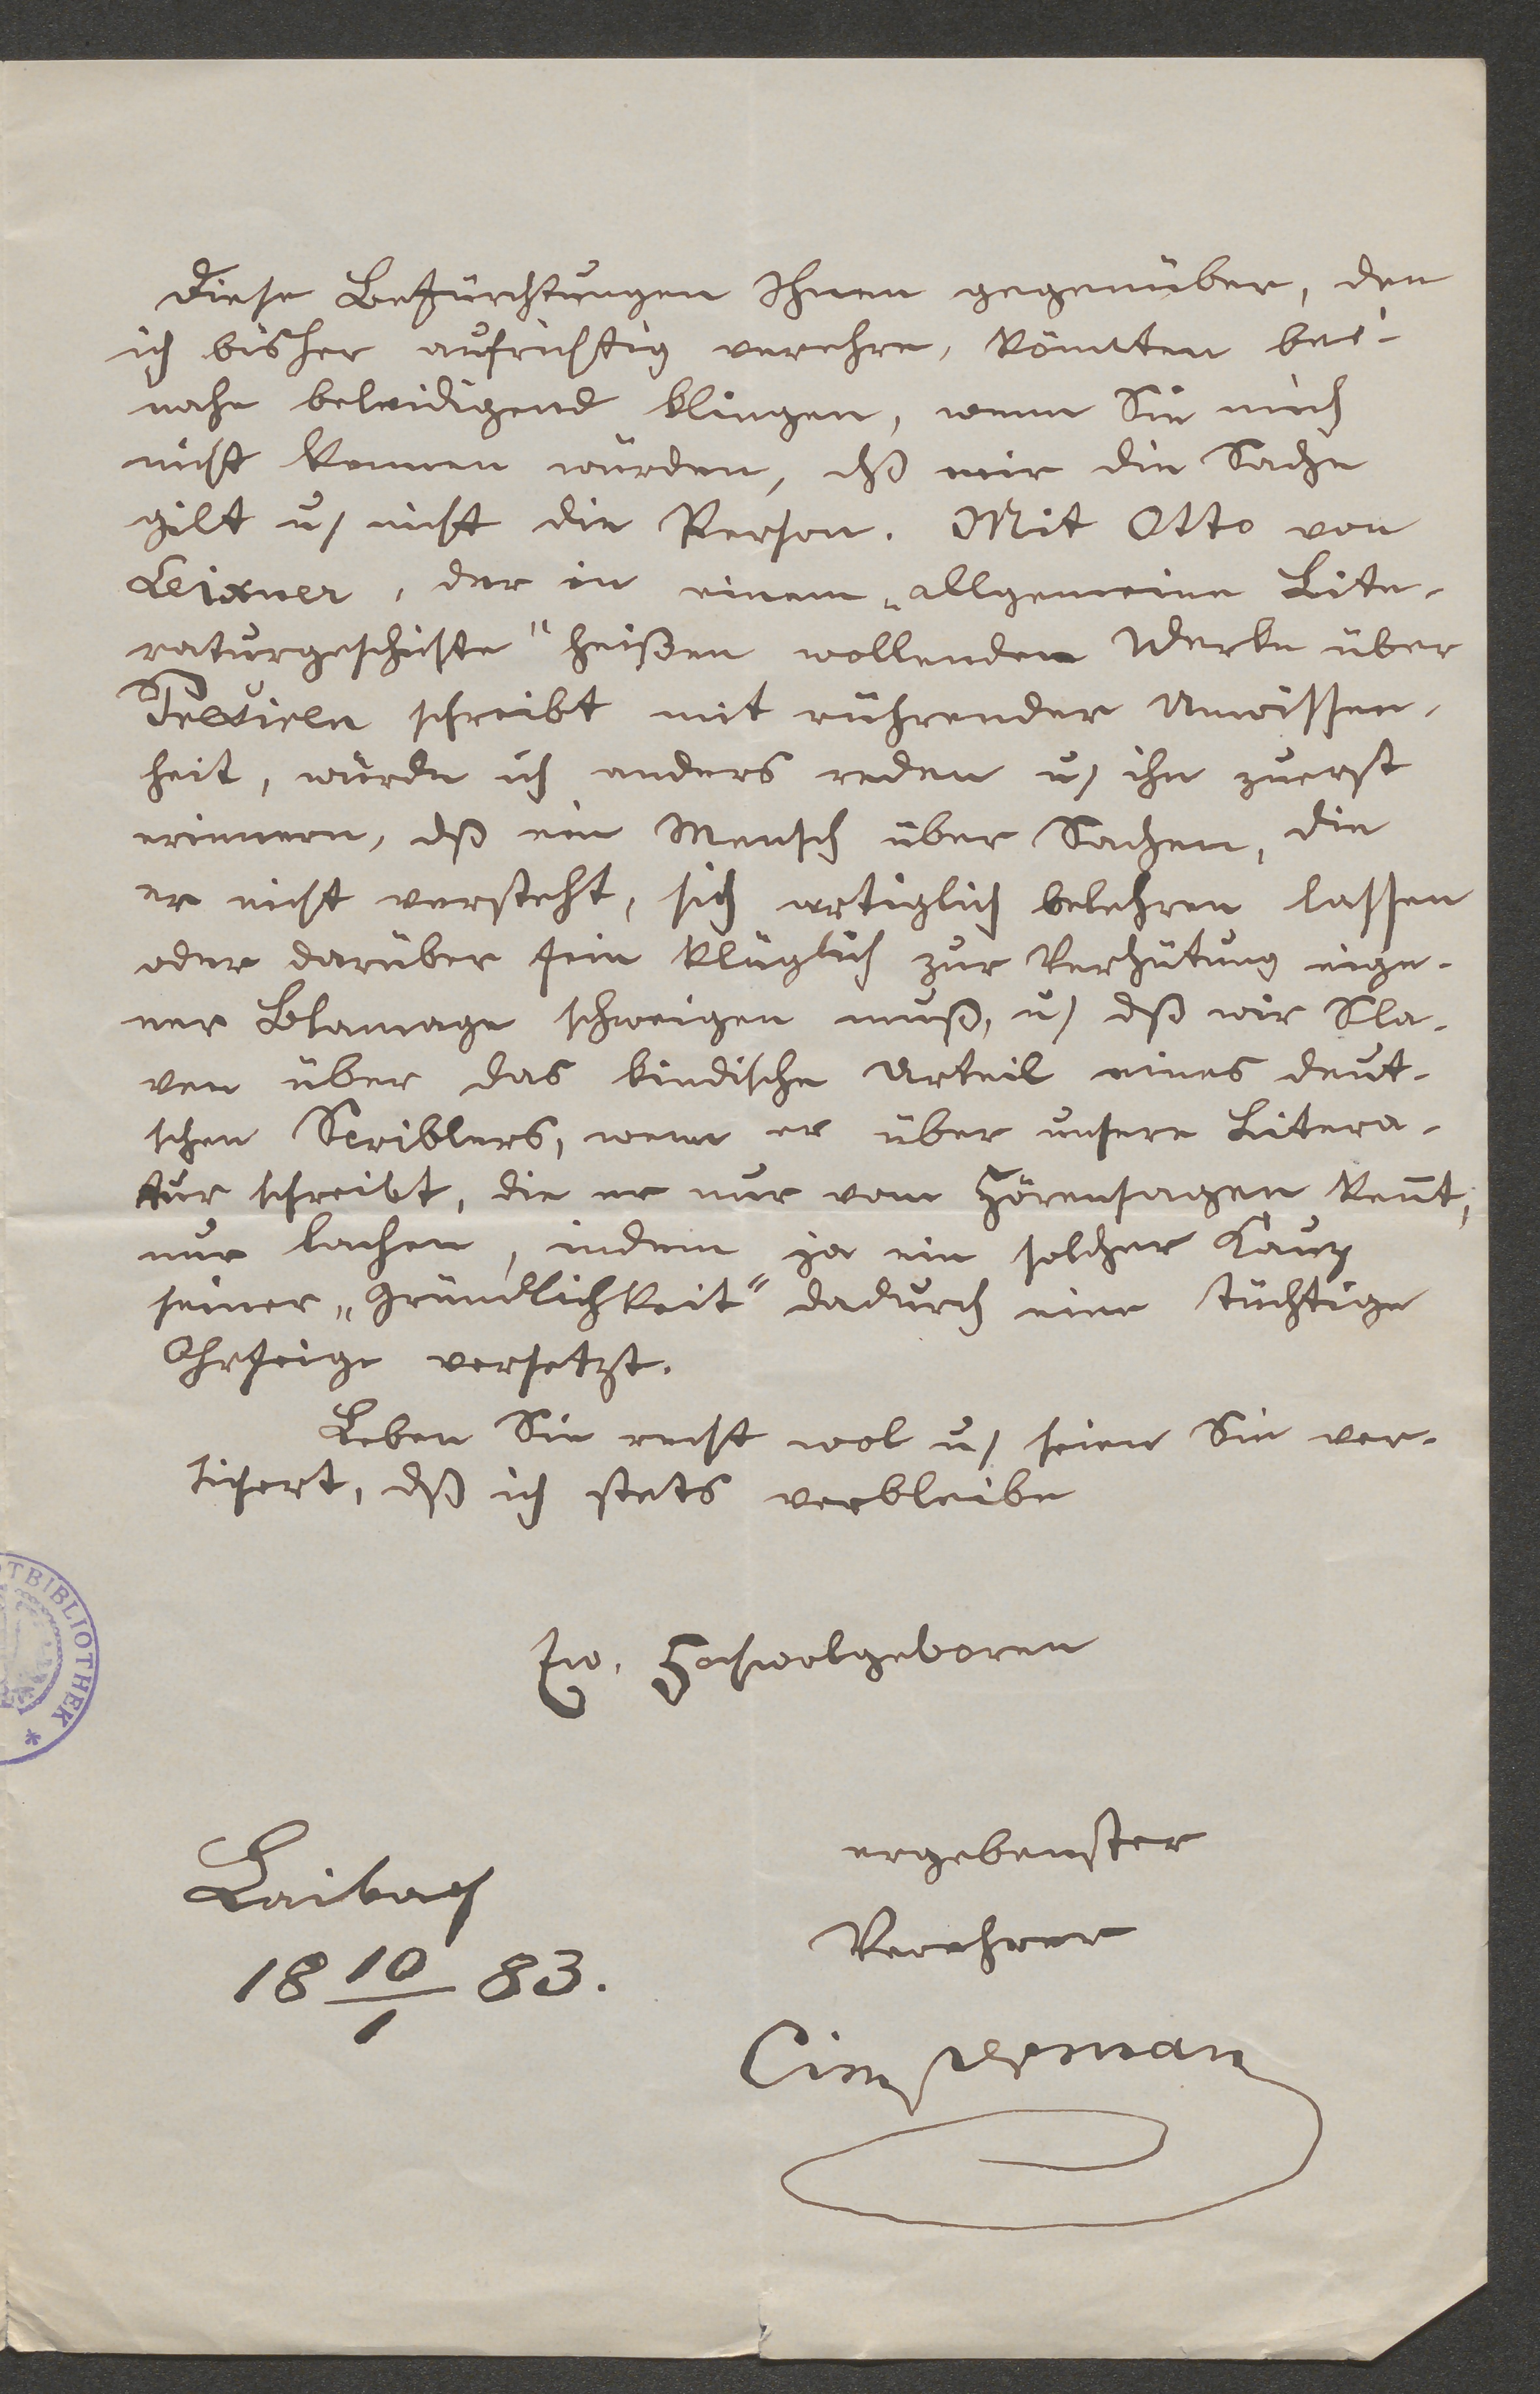 Diese Befürchtungen Ihnen gegenüber, den
ich bisher aufrichtig verehre, könnten bei-
nahe beleidigend klingen, wenn Sie mich
nicht kennen würden, dß mir die Sache
gilt u/ nicht die Person. Mit Otto von
Leixner, der in einem „allgemeine Lite-
raturgeschichte“ heißen wollenden Werke über
schreibt mit rührender Unwissen-
heit, würde ich anders reden u/ ihn zuerst
erinnern, dß ein Mensch über Sachen, die
er nicht versteht, sich artiglich belehren lassen
oder darüber fein klüglich zur Verhütung eige-
ner Blamage schweigen muß, u/ dß wir Sla-
ven über das kindische Urteil eines deut-
schen Scriblers, wenn er über unsere Litera-
tur schreibt, die er nur vom Hörensagen kent̄,
nur lachen, indem ja ein solcher Kauz
seiner „Gründlichkeit“ dadurch eine tüchtige
Ohrfeige versetzt.
Leben Sie recht wol u/ seien Sie ver-
sichert, dß ich stets verbleibe
Ew. Hochwolgeboren
ergebenster
Laibach
Verehrer
18 10/1 83.
TBIBLIOTHEK *